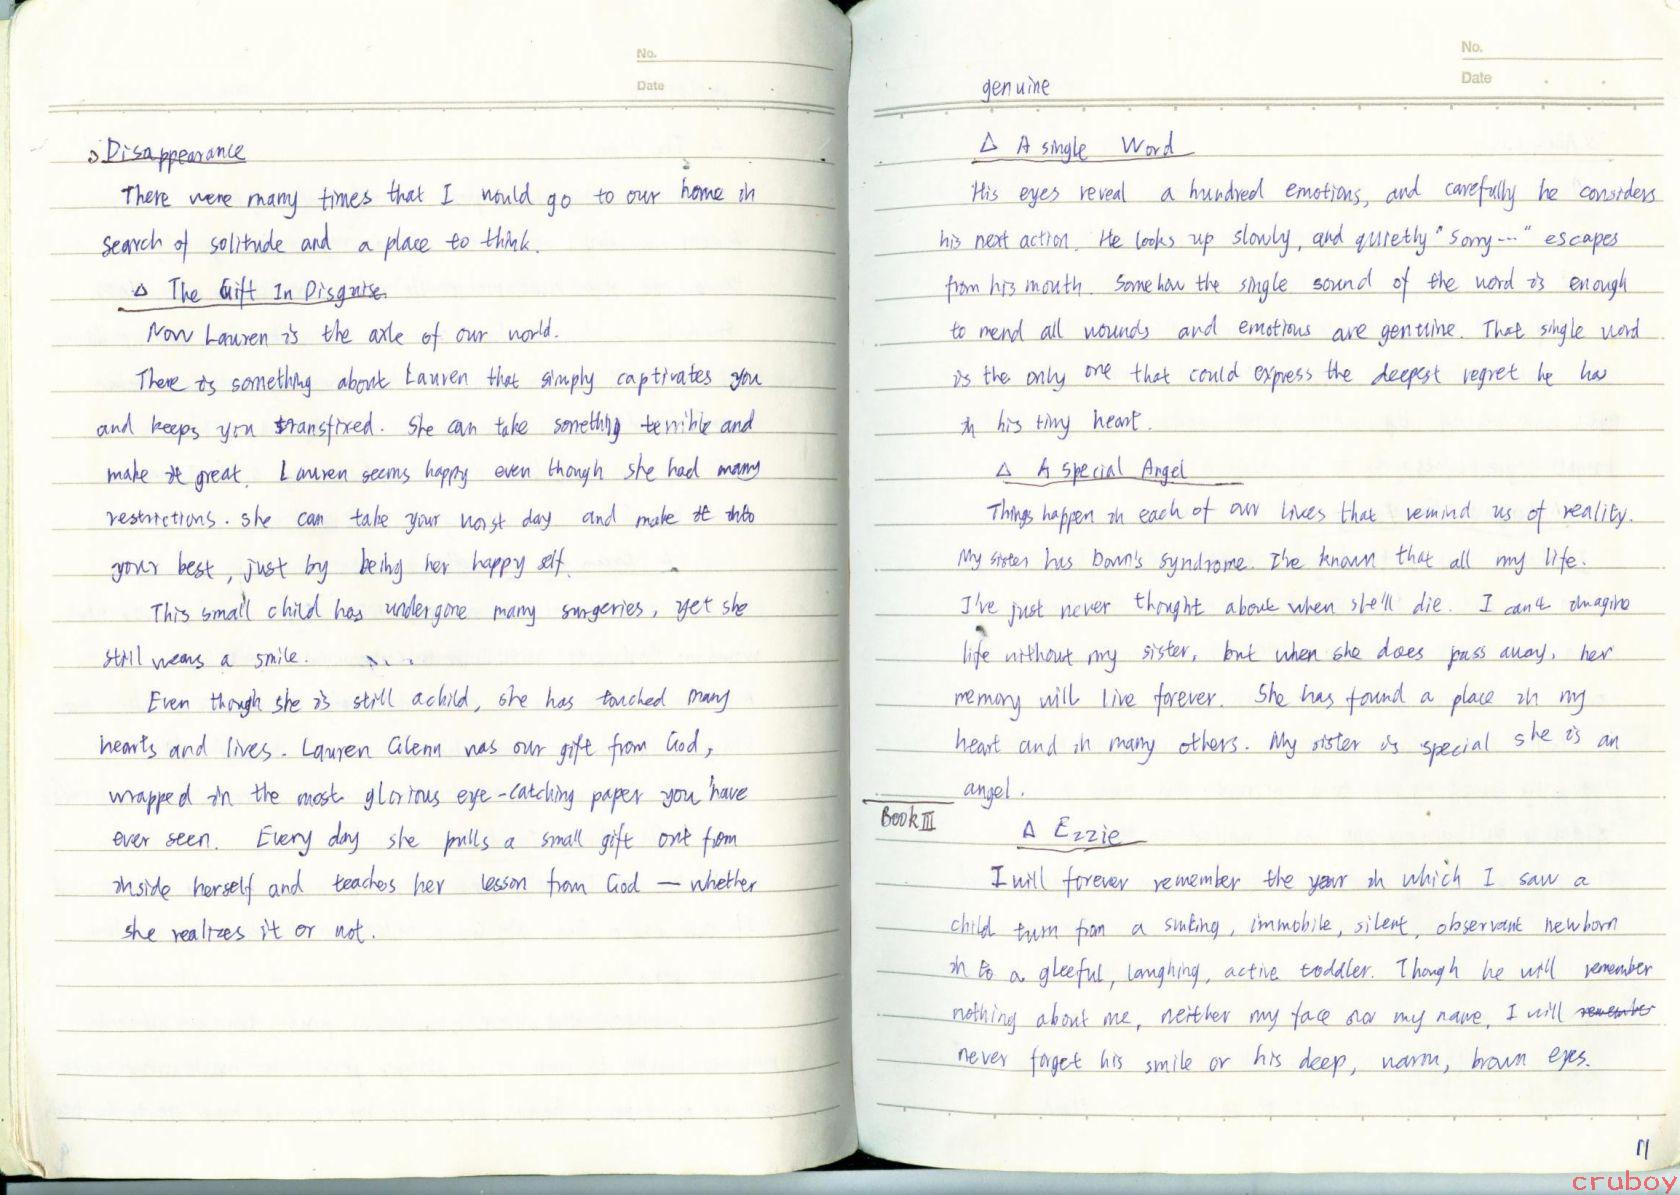 No.
Date
Disappearance
There were many times that I would go to our home in
search of solitude and a place to think.
△ The Gift In Disguise.
Now Lauren is the axle of our world.
There is something about Lauren that simply captivates you
and keeps you transfixed. She can take something terrible and
make it great. Lauren seems happy even though she had many
restrictions. she can take your worst day and make it into
your best, just by being her happy self.
This small child has undergone many surgeries, yet she
still wears a smile.
Even though she is still a child, she has touched many
hearts and lives. Lauren Glenn was our gift from God,
wrapped in the most glorious eye-catching paper you have
ever seen. Every day she pulls a small gift out from
inside herself and teaches her lesson from God — whether
she realizes it or not.
No.
Date
genuine
△ A single Word
His eyes reveal a hundred emotions, and carefully he considers
his next action. He looks up slowly, and quietly "Sorry..." escapes
from his mouth. Somehow the single sound of the word is enough
to mend all wounds and emotions are genuine. That single word
is the only one that could express the deepest regret he has
in his tiny heart.
△ A Special Angel
Things happen in each of our lives that remind us of reality.
My sister has Down's syndrome. I've known that all my life.
I've just never thought about when she'll die. I can't imagine
life without my sister, but when she does pass away, her
memory will live forever. She has found a place in my
heart and in many others. My sister is special she is an
angel.
Book III
△ Ezzie
I will forever remember the year in which I saw a
child turn from a sulking, immobile, silent, observant newborn
in to a gleeful, laughing, active toddler. Though he will remember
nothing about me, neither my face nor my name, I will remember
never forget his smile or his deep, warm, brown eyes.
11
cruboy